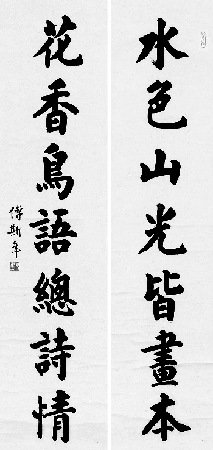 水色山光皆畫本
花香鳥語總詩情
傅斯年